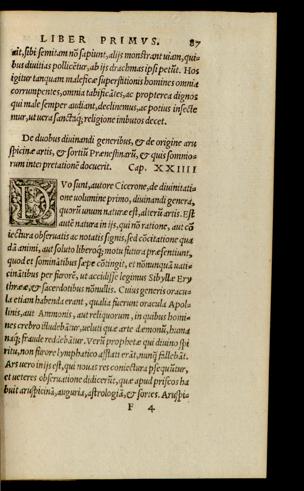 LIBER PRIMVS. 87
ăt, sibi semitam nõ sapiunt, alijs monstrant uiam, qui-
bus diuitias pollicẽtur, ab ijs drachmas ipsi petũt. Hos
igitur tanquam maleficæ superstitionis homines omnia
corrumpentes, omnia tabificãtes, ac propterea dignos
qui male semper audiant, declinemus, ac potius insecte
mur, ut uera sanctaq; religione imbutos decet.
De duobus diuinandi generibus, & de origine aru
spicinæ artis, & sortiũ Prænestinarũ, & quis somnio-
rum interpretationẽ docuerit. Cap. XXIIII
DVo sunt, autore Cicerone, de diuinitati-
one uolumine primo, diuinandi genera,
quorũ unum naturæ est, alterũ artis. Est
autẽ natura in ijs, qui nõ ratione, aut cõ
iectura obseruatis ac notatis signis, sed cõcitatione qua
dã animi, aut soluto liberoq; motu futura præsentiunt,
quod et somniãtibus sæpe cõtingit, et nõnunquã uati-
cinãtibus per furorẽ, ut accidisse legimus Sibyllæ Ery
thrææ, & sacerdotibus nõnullis. Cuius generis oracu-
la etiam habenda erant, qualia fuerunt oracula Apol-
linis, aut Ammonis, aut reliquorum, in quibus homi-
nes crebro illudebãtur, ueluti quæ arte dæmonũ, huma
naq; fraude reddebãtur. Verũ prophetæ qui diuino spi
ritu, non furore lymphatico afflati erãt, nunq̃ fallebãt.
Ars uero in ijs est, qui nouas res coniectura ꝑsequũtur,
et ueteres obseruatione didicerũt, quæ apud priscos ha
buit aruspicinã, auguria, astrologiã, & sortes. Aruspi-
F 4